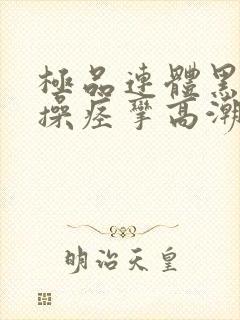 極品連體黑
操痉挛高潮
明治天皇